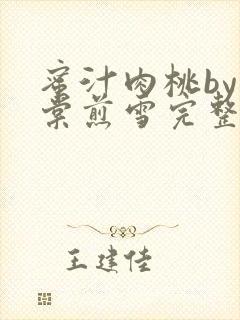 蜜汁肉桃by
棠煎雪完整
王建佳